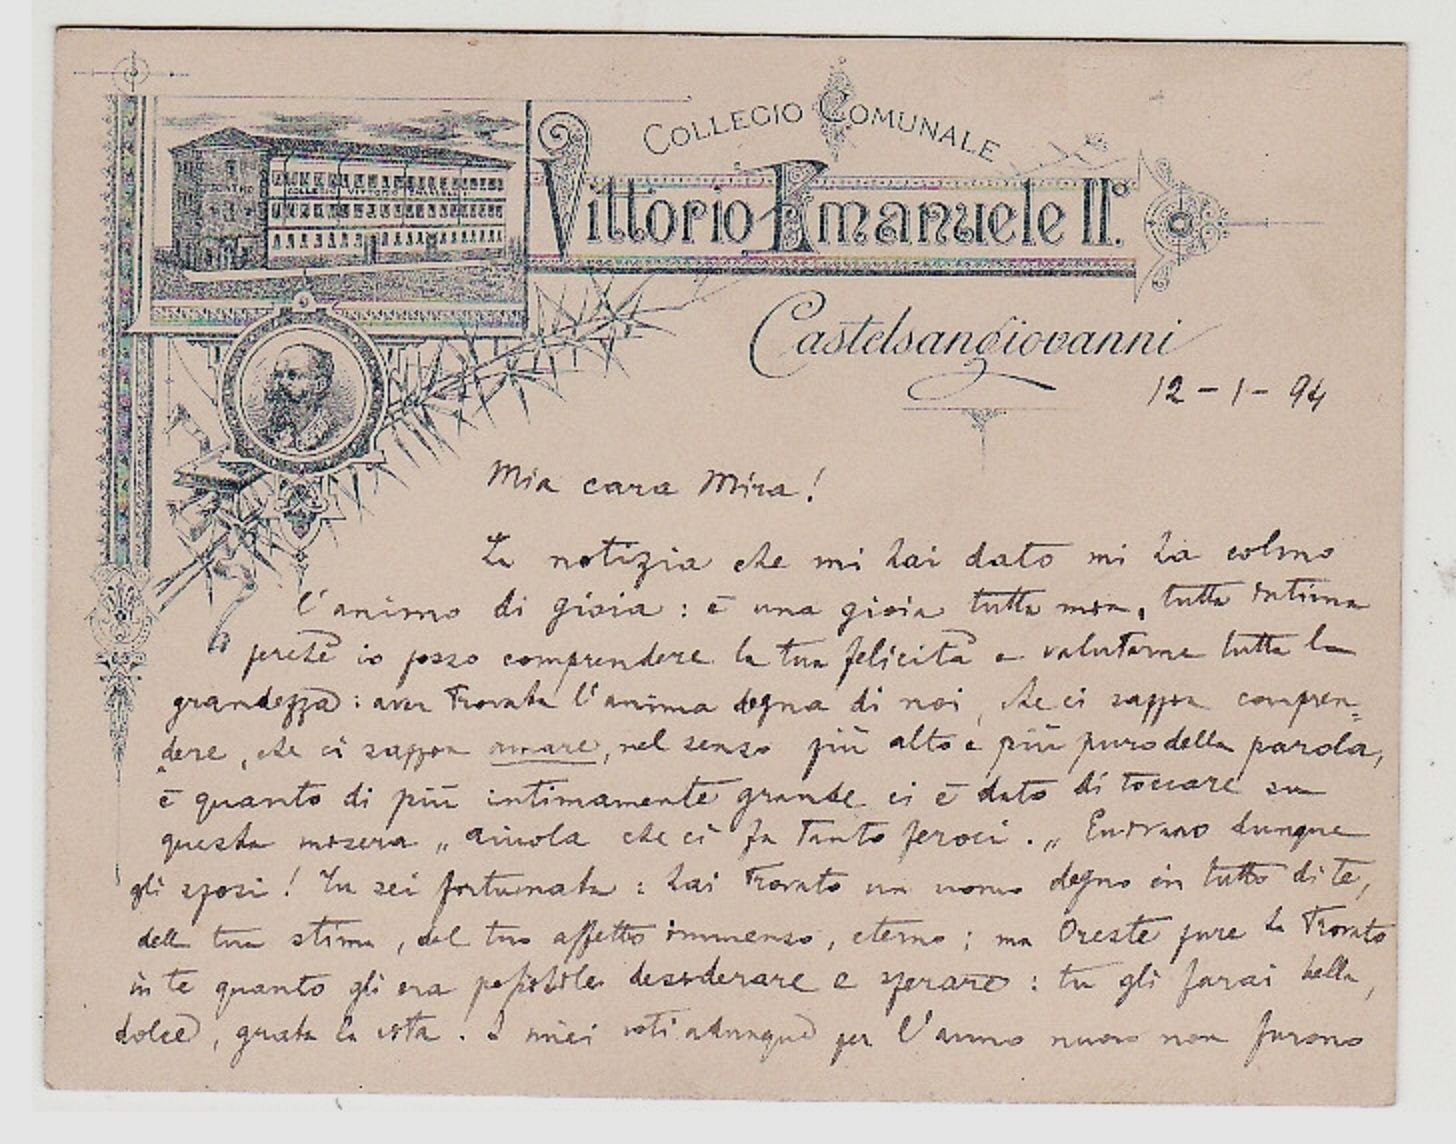 COLLEGIO COMUNALE
Vittorio Emanuele II.º
Castelsangiovanni
12 - 1 - 94
Mia cara Mira!
La notizia che mi hai dato mi ha colmo
l'animo di gioia : è una gioia tutta mia, tutta intima
perchè io posso comprendere la tua felicità e valutarne tutta la
grandezza : aver trovata l'anima degna di noi, che ci sappia compren=
dere, che ci sappia amare, nel senso più alto e più puro della parola,
è quanto di più intimamente grande ci è dato di toccare su
questa misera „ aiuola che ci fa tanto feroci. „ Evviva dunque
gli sposi ! Tu sei fortunata : hai trovato un uomo degno in tutto di te,
della tua stima, del tuo affetto immenso, eterno ; ma Oreste pure ha trovato
in te quanto gli era possibile desiderare e sperare : tu gli farai bella,
dolce, grata la vita. I miei voti adunque per l'anno nuovo non furono